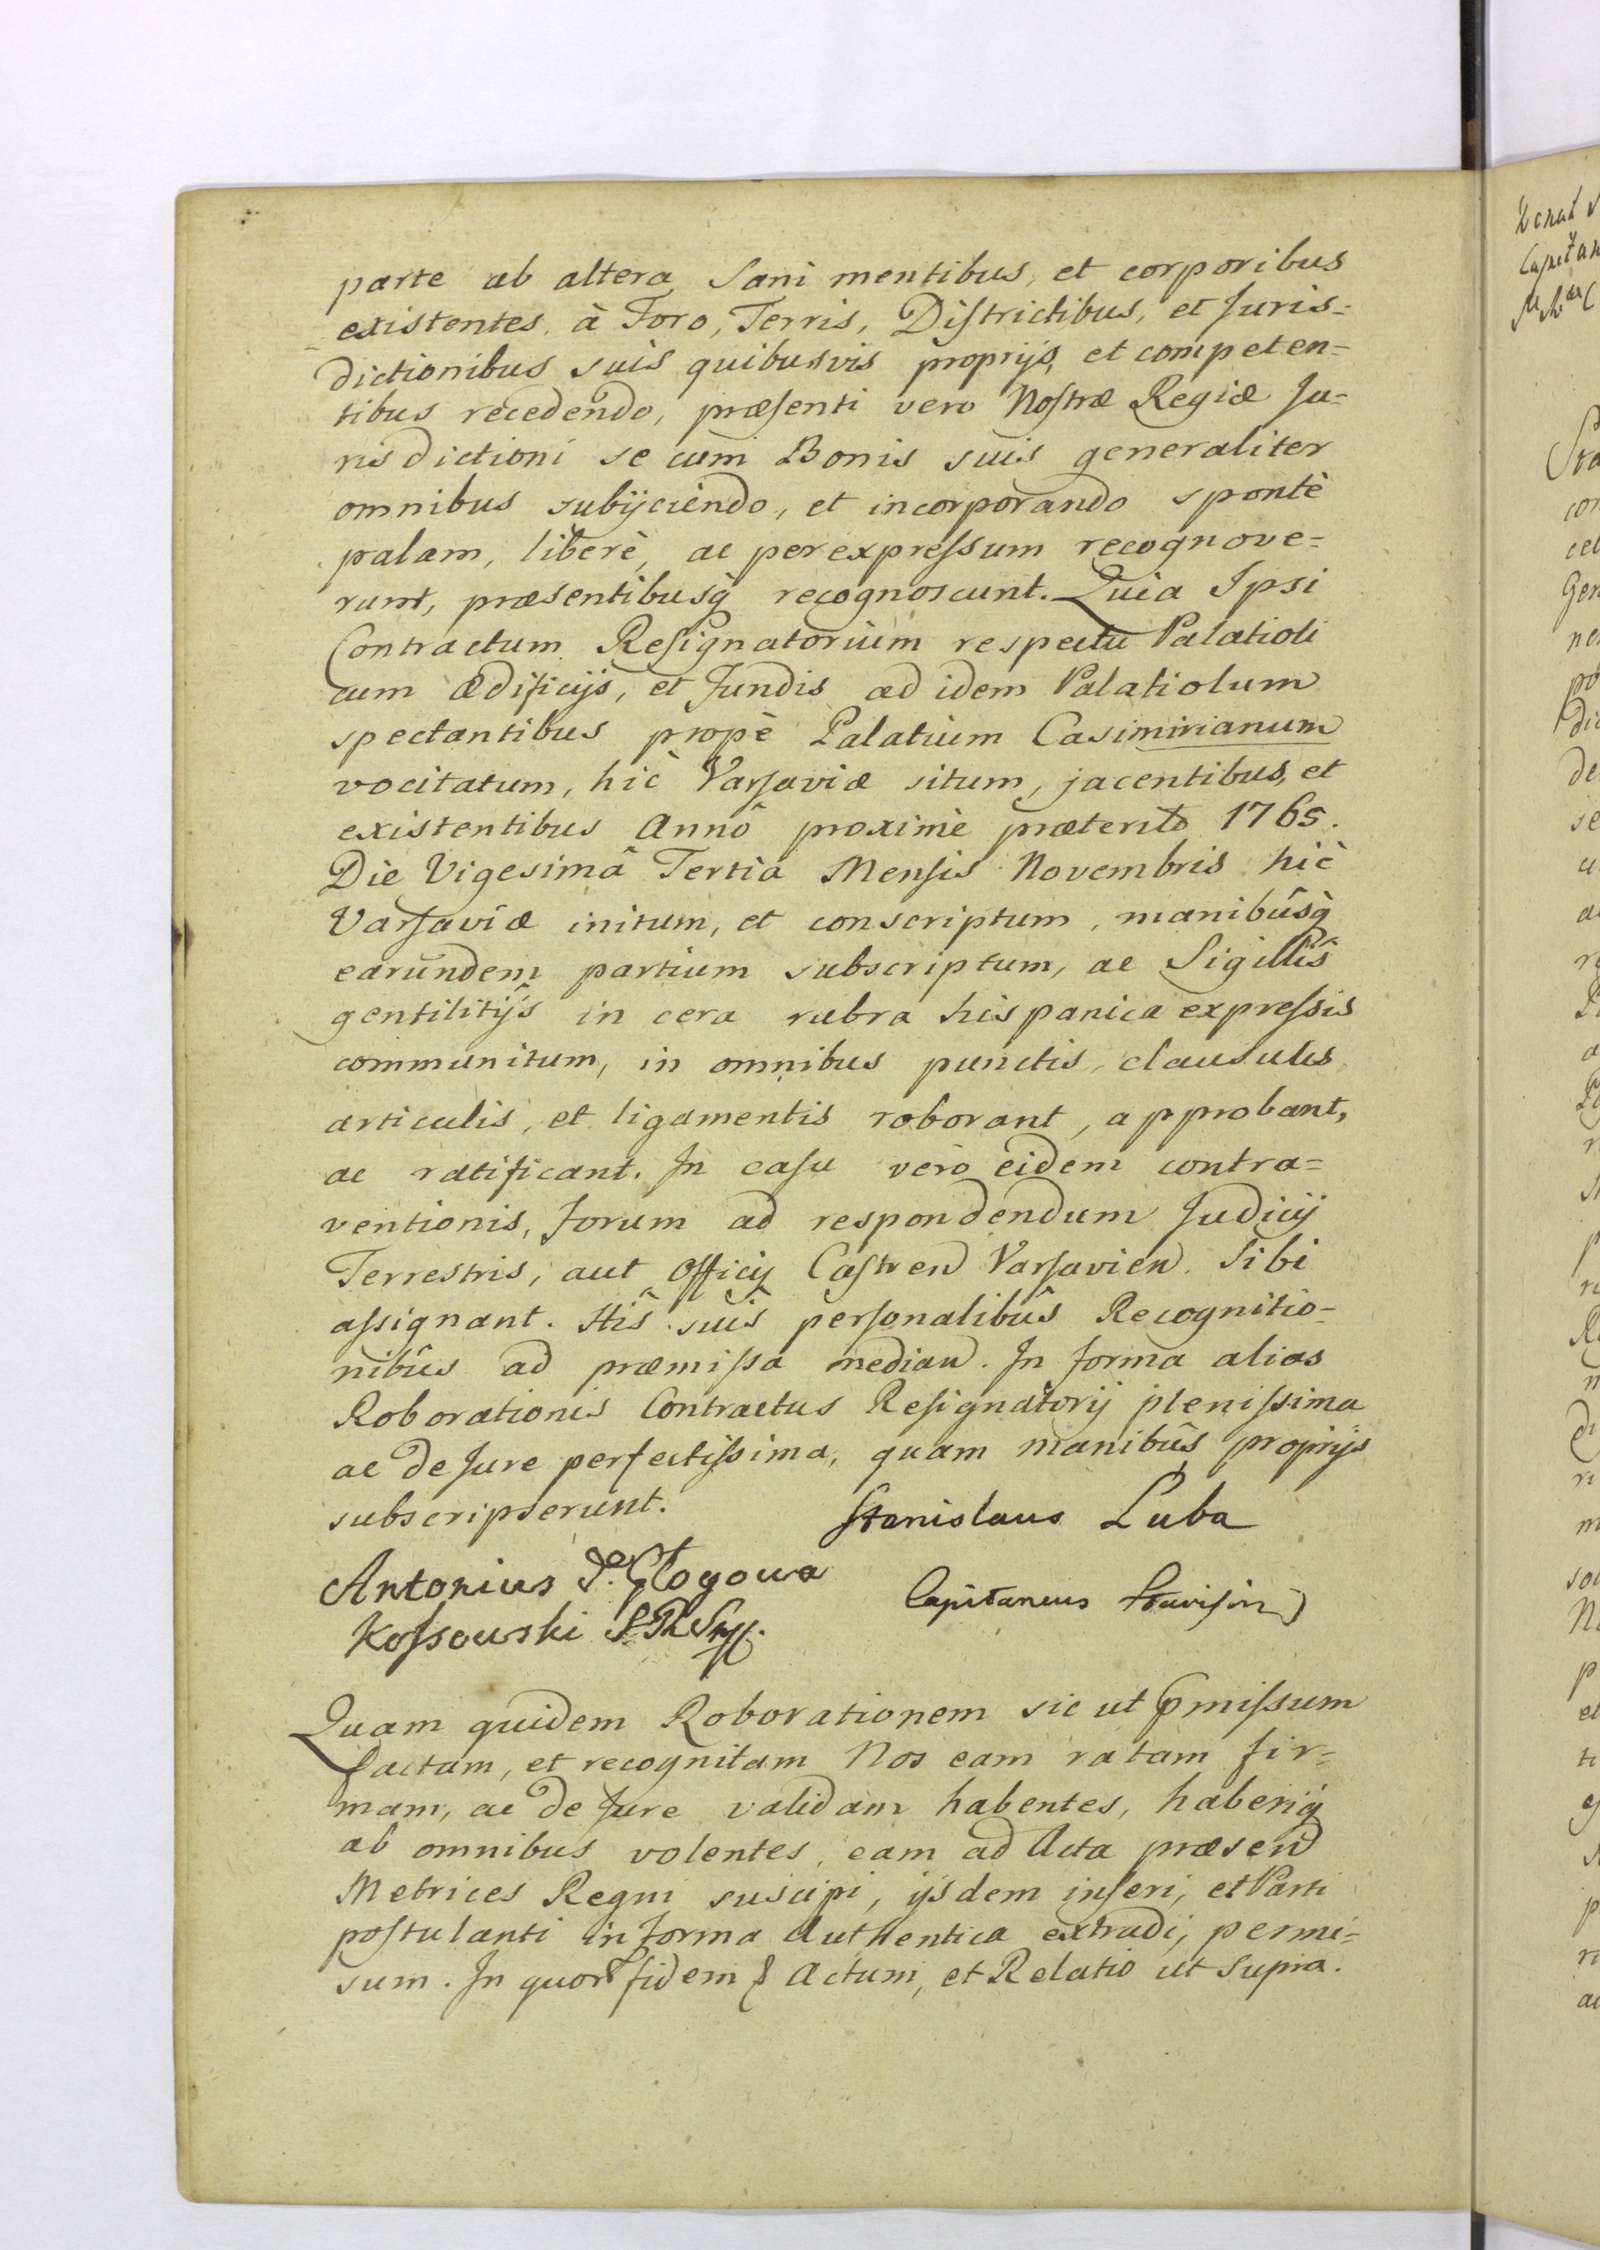 parte ab altera Sani mentibus, et corporibus
existentes, à Foro, Terris, Districtibus, et Juris=
dictionibus suis quibusvis proprijs, et competen=
tibus recedendo, præsenti vero Nostræ Regiæ Ju=
risdictioni se cum Bonis suis generaliter
omnibus subijciendo, et incorporando spontè
palam, liberè, ac per expressum recognove=
runt, præsentibusq̀ recognoscunt. Quia Ipsi
Contractum Resignatorium respectu Palatioli
cum ædificijs, et fundis ad idem Palatiolum
spectantibus propè Palatium Casimirianum
vocitatum, hic Varsaviæ situm, jacentibus, et
existentibus Annô proximè præterito 1765.
Die Vigesimâ Tertia Mensis Novembris hic
Varsaviæ initum, et conscriptum, manibûsq̀
earundem partium subscriptum, ac Sigillis
gentilitijs in cera rubra hispanica expressis
communitum, in omnibus punctis, clausulis
articulis, et ligamentis roborant, approbant,
ac ratificant. In casu verò eidem contra=
ventionis, forum ad respondendum Judicij
Terrestris, aut Officij Castren Varsavien. Sibi
assignant. Hîs suis personalibûs Recognitio=
nibûs ad præmissa median. In forma alias
Roborationis Contractus Resignatorij plenissima
ac de Jure perfectissima, quam manibûs proprijs
subscripserunt.
Stanislaus Luba
Antonius d. Głogowa
Capitaneus Stavisin
Kossowski
Quam quidem Roborationem sic ut pmissum
factam, et recognitam Nos eam ratam fir=
mam, ac de Jure validam habentes, haberiq̀
ab omnibus volentes, eam ad Acta præsen
Metrices Regni suscipi, ijsdem inseri, et Parti
postulanti in forma Authentica extradi, permi=
sum. In quor fidem Actum, et Relatio ut supra.